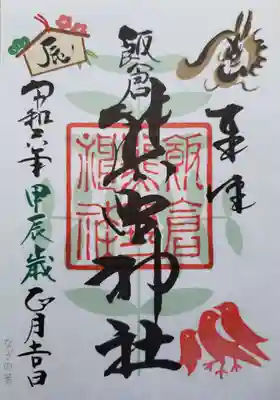 奉拝
飯倉
熊野神社
飯倉
熊野
神社
辰
令和六年 甲辰歳 正月吉日
なぎの葉